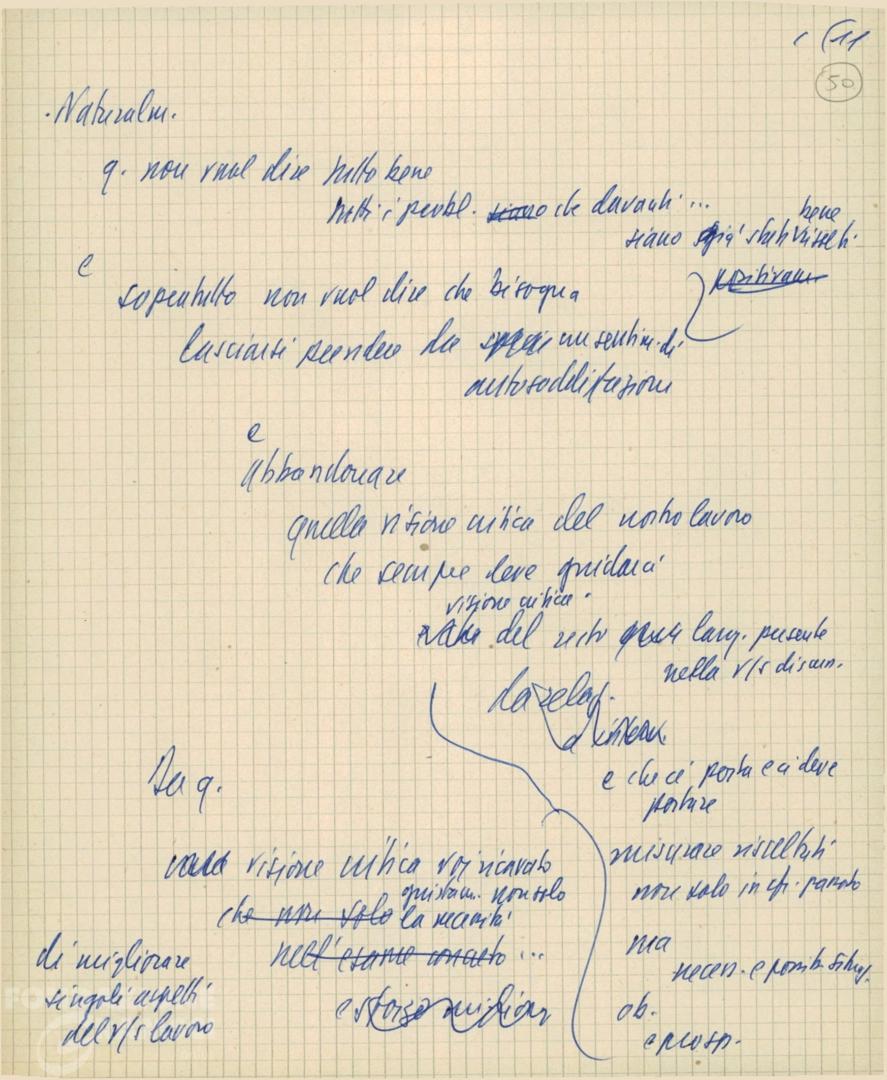 50
. Naturalm.
q. non vuol dire tutto bene
tutti i probl. siano che davanti ...
siano già stati risolti bene
e
soprattutto non vuol dire che bisogna
lasciarsi prendere da un sentim. di
autosoddisfazione
e
abbandonare
quella visione critica del nostro lavoro
che sempre deve guidarci
visione critica
del resto larg. presente
nella v/s discus.
da relaz.
a interv.
e che ci porta e ci deve
portare
Da q.
visione critica voi ricavato
non solo
che non solo la necessità
nell'esame concreto ...
di migliorare
singoli aspetti
del v/s lavoro
e sforzo
misurare risultati
non solo in passato
ma
necess. e possib.
ob.
e prosp.